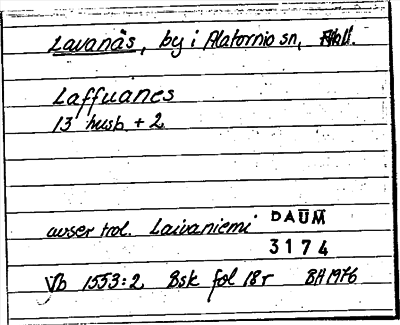 Lavanäs, by i Alatornio sn,
Laffuanes
13 husb + 2
avser trol. Laivaniemi DAUM
3174
Vb 1553:2 Bsk fol 18r BH 1976